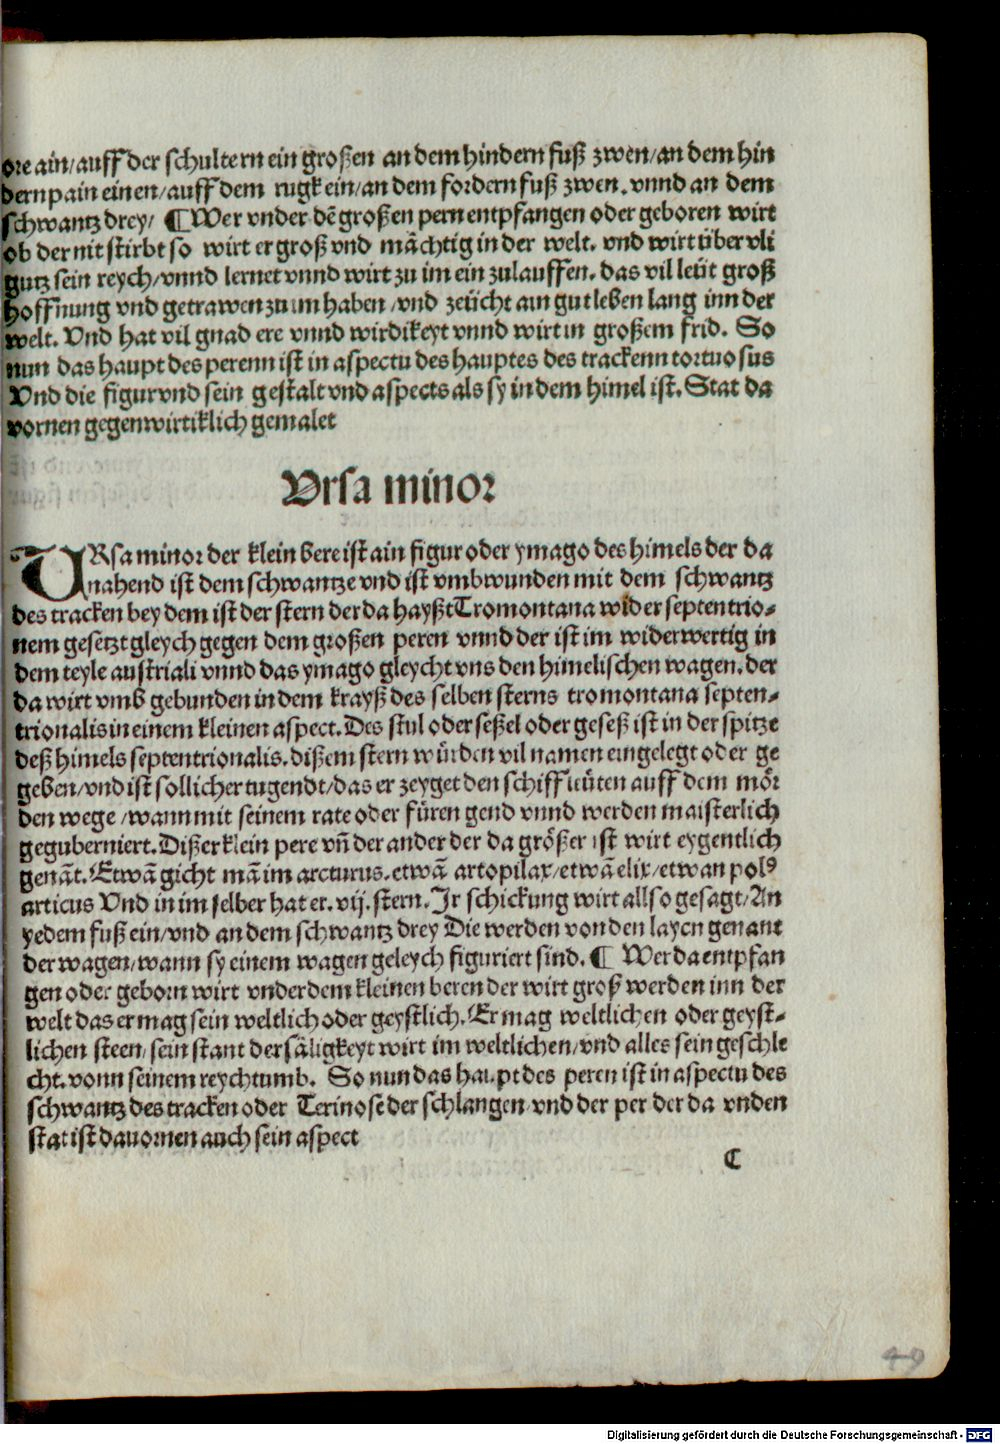 ore ain/auff der schultern ein großen an dem hindern fuß zwen/an dem hin
dern pain einen/auff dem rugk ein/an dem fordern fuß zwen. vnnd an dem
schwantz drey/ ¶ Wer vnder dē großen pern entpfangen oder geboren wirt
ob der nit stirbt so wirt er groß vnd mächtig in der welt. vnd wirt über vli
gutz sein reych/vnnd lernet vnnd wirt zu im ein zulauffen. das vil leüt groß
hoffnung vnd getrawen zu im haben /vnd zeücht ain gut leben lang inn der
welt. Vnd hat vil gnad ere vnnd wirdikeyt vnnd wirt in großem frid. So
nun das haupt des perenn ist in aspectu des hauptes des trackenn tortuosus
Vnd die figur vnd sein gestalt vnd aspects als sy in dem himel ist. Stat da
vornen gegenwirtiklich gemalet
Vrsa minor
URsa minor der klein bere ist ain figur oder ymago des himels der da
nahend ist dem schwantze vnd ist vmbwunden mit dem schwantz
des tracken bey dem ist der stern der da hayßt Tromontana wider septentrio-
nem gesetzt gleych gegen dem großen peren vnnd der ist im widerwertig in
dem teyle australi vnnd das ymago gleycht vns den himelischen wagen. der
da wirt vmb gebunden in dem krayß des selben sterns tromontana septen-
trionalis in einem kleinen aspect. Des stul oder seßel oder geseß ist in der spitze
deß himels septentrionalis. dißem stern würden vil namen eingelegt oder ge
geben/vnd ist sollicher tugendt/das er zeyget den schiffleüten auff dem mör
den wege /wann mit seinem rate oder füren gend vnnd werden maisterlich
geguberniert. Dißer klein pere vñ der ander der da größer ist wirt eygentlich
genāt. Etwā gicht mā im arcturus. etwā artopilax/etwā elix/etwan polꝰ
articus Vnd in im selber hat er. vij. stern. Ir schickung wirt allso gesagt/An
yedem fuß ein/vnd an dem schwantz drey Die werden von den layen genant
der wagen/wann sy einem wagen geleych figuriert sind. ¶ Wer da entpfan
gen oder geborn wirt vnder dem kleinen beren der wirt groß werden inn der
welt das er mag sein weltlich oder geystlich. Er mag weltlichen oder geyst-
lichen steen/ sein stant der säligkeyt wirt im weltlichen/vnd alles sein geschle
cht. vonn seinem reychtumb. So nun das haupt des peren ist in aspectu des
schwantz des tracken oder Terinose der schlangen/vnd der per der da vnden
stat ist da vornen auch sein aspect
C
49
Digitalisierung gefördert durch die Deutsche Forschungsgemeinschaft - DFG